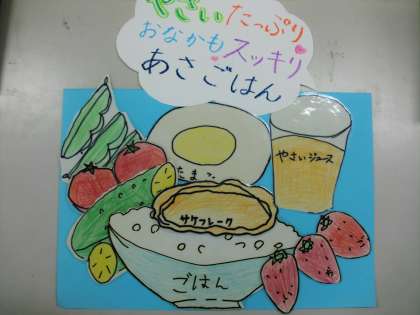 やさい たっぷり
おなかも スッキリ
あさごはん
たまご
やさいジュース
サケフレーク
ごはん